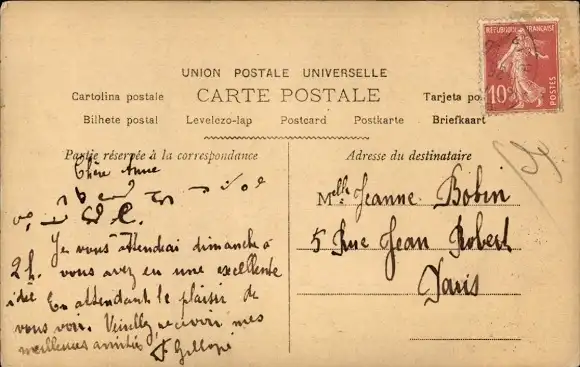 UNION POSTALE UNIVERSELLE
CARTE POSTALE
Cartolina postale
Tarjeta po
Bilhete postal Levelezo-lap Postcard Postkarte Briefkaart
Partie réservée à la correspondance
Adresse du destinataire
RÉPUBLIQUE FRANÇAISE
10c
POSTES
Chère Anne
Je vous attendrai dimanche à
2 h. vous avez eu une excellente
idée En attendant le plaisir de
vous voir. Veuillez recevoir mes
meilleures amitiés
Melle Jeanne Bobin
5 Rue Jean Robert
Paris